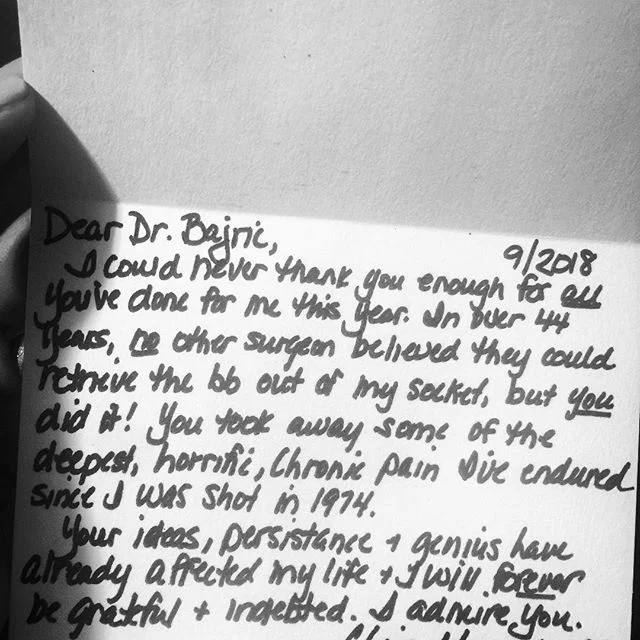 Dear Dr. Bajric,
9/2018
I could never thank you enough for all
you've done for me this year. In over 44
years, no other surgeon believed they could
retrieve the bb out of my socket, but you
did it! You took away some of the
deepest, horrific, Chronic pain I've endured
since I was shot in 1974.
Your ideas, persistance + genius have
already affected my life + I will forever
be grateful + indebted. I admire you.